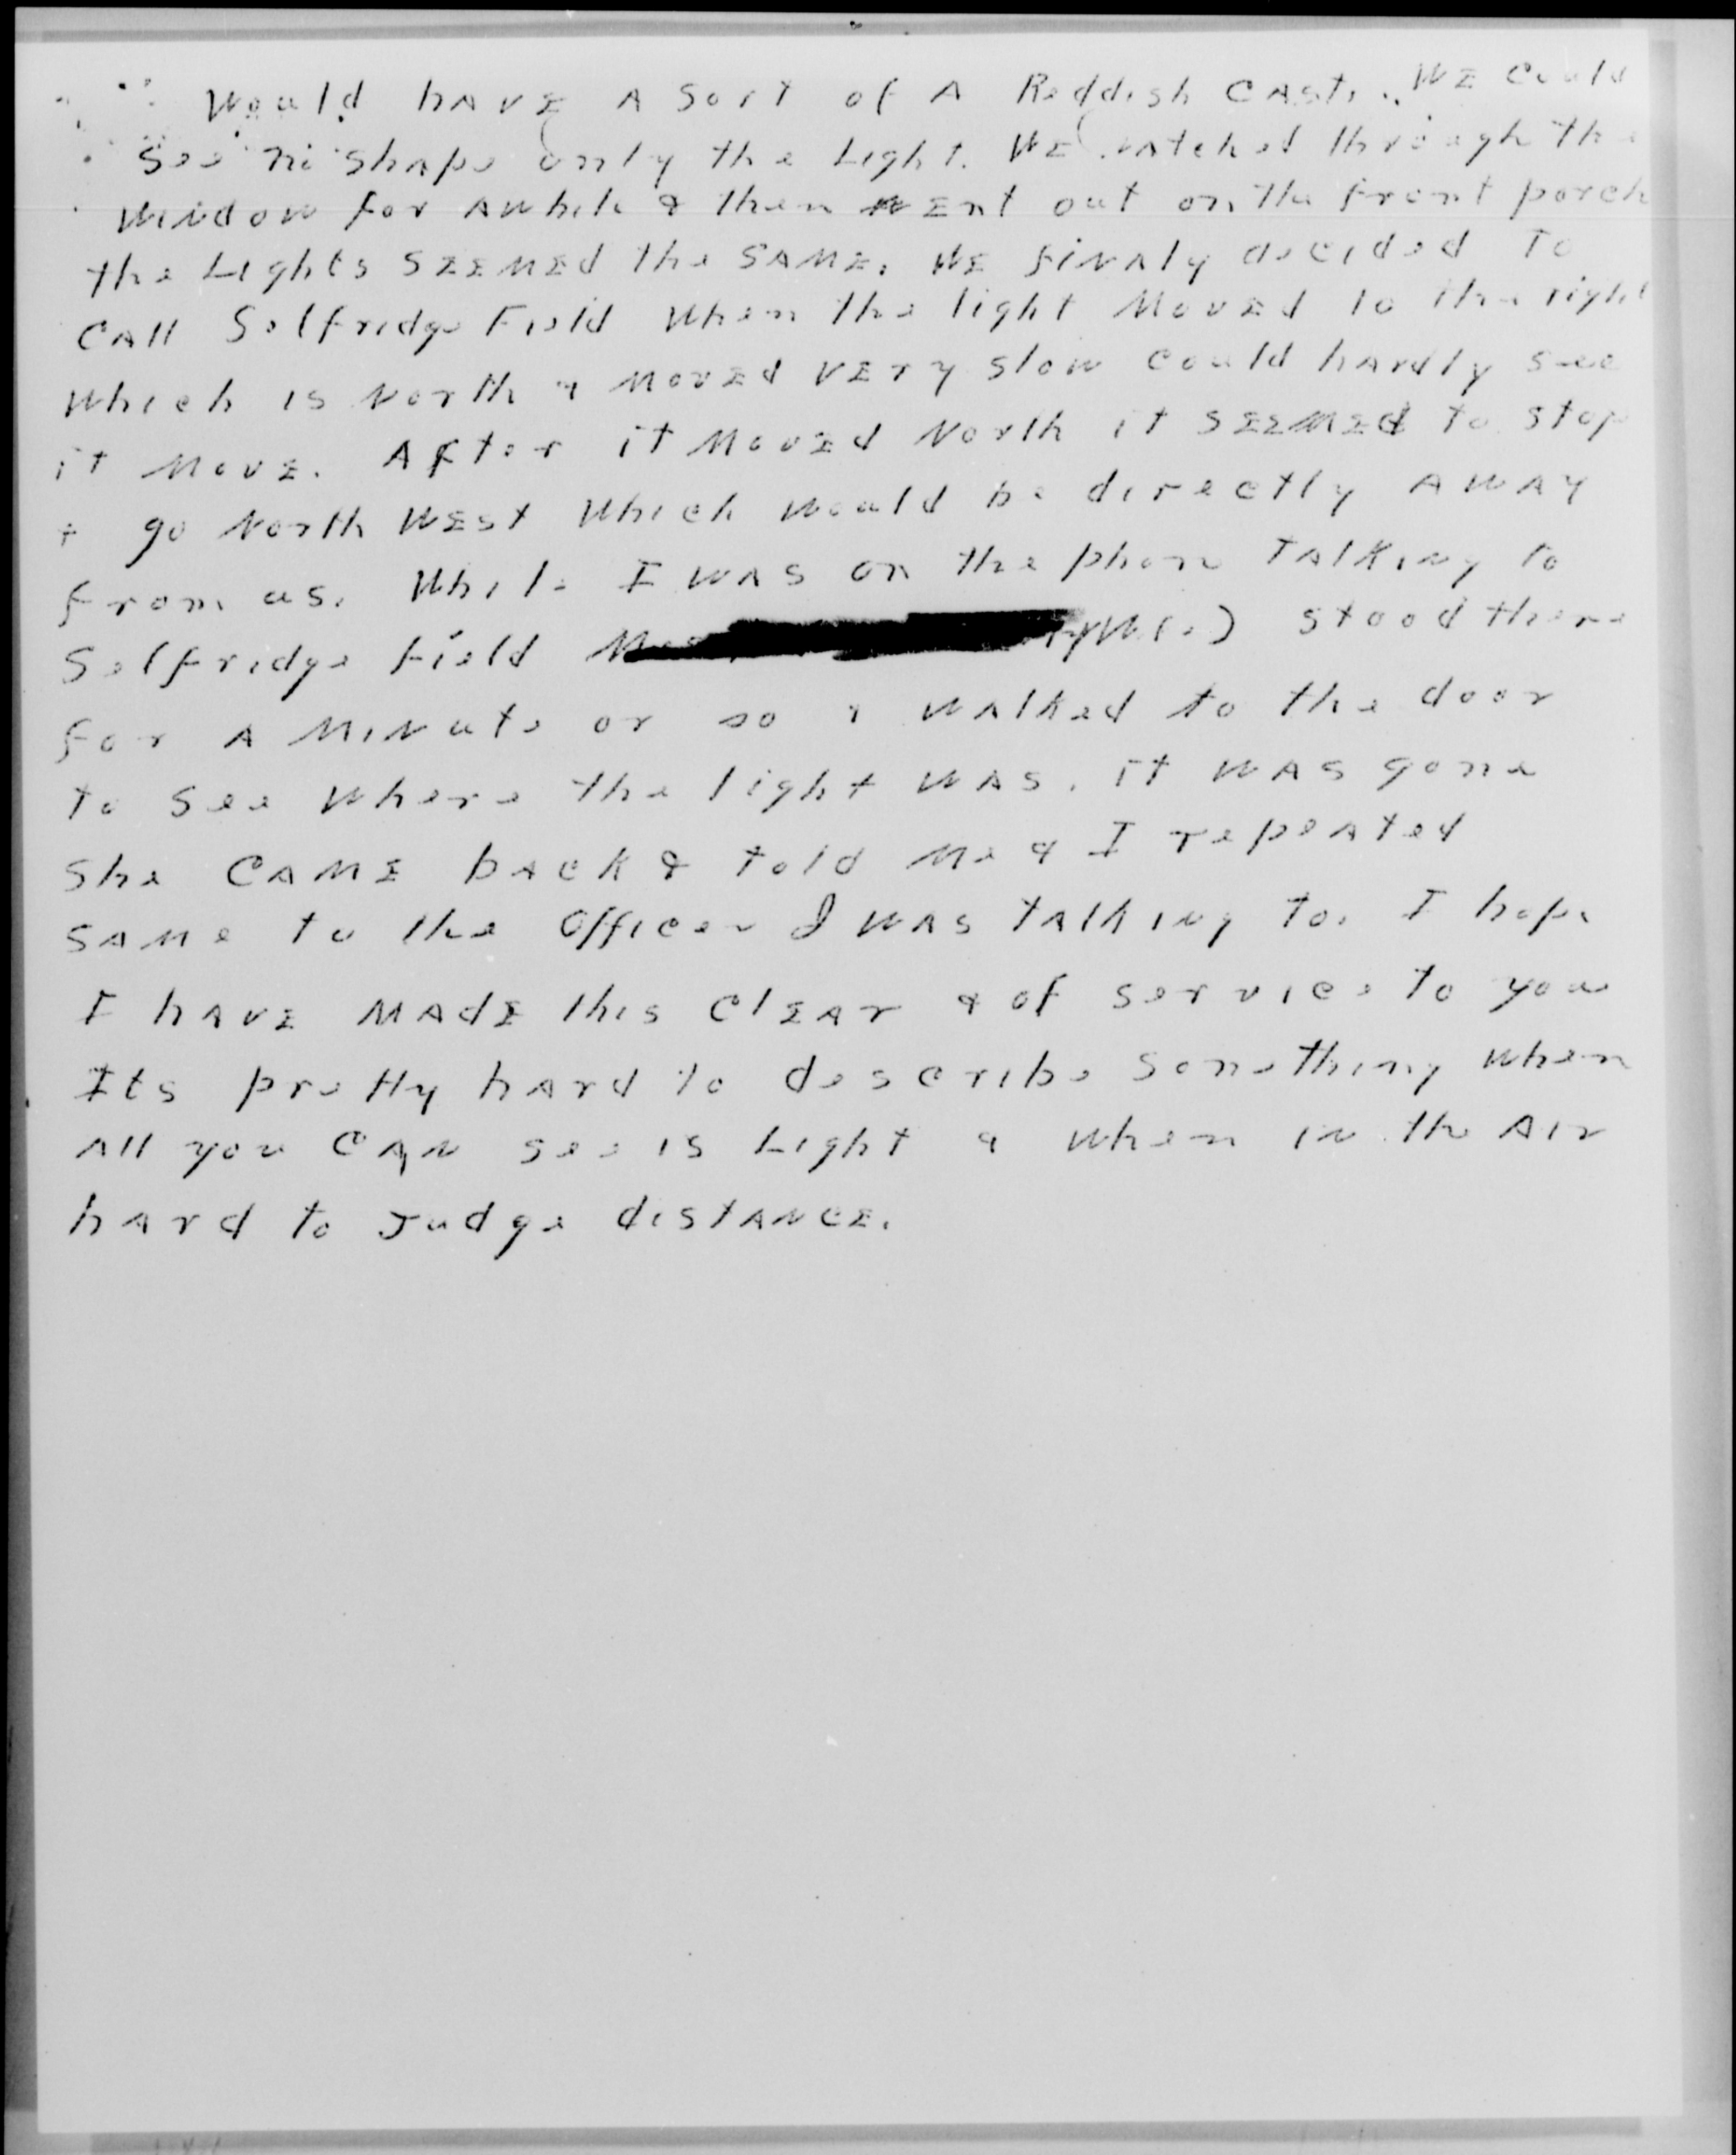 Would have a sort of a Reddish Cast. We Could
See no shape only the Light. We watched through the
Window for awhile & then went out on the front porch
the Lights seemed the same. We finaly decided to
Call Selfridge Field when the light moved to the right
which is North & moved very slow could hardly see
it move. After it moved North it seemed to stop
+ go North West which would be directly away
from us. While I was on the phone talking to
Selfridge Field stood there
for a minute or so & walked to the door
to see where the light was. it was gone
she came back & told me & I repeated
same to the Officer I was talking to. I hope
I have made this clear & of service to you
Its pretty hard to describe something when
all you can see is Light & when in the Air
hard to Judge distance.